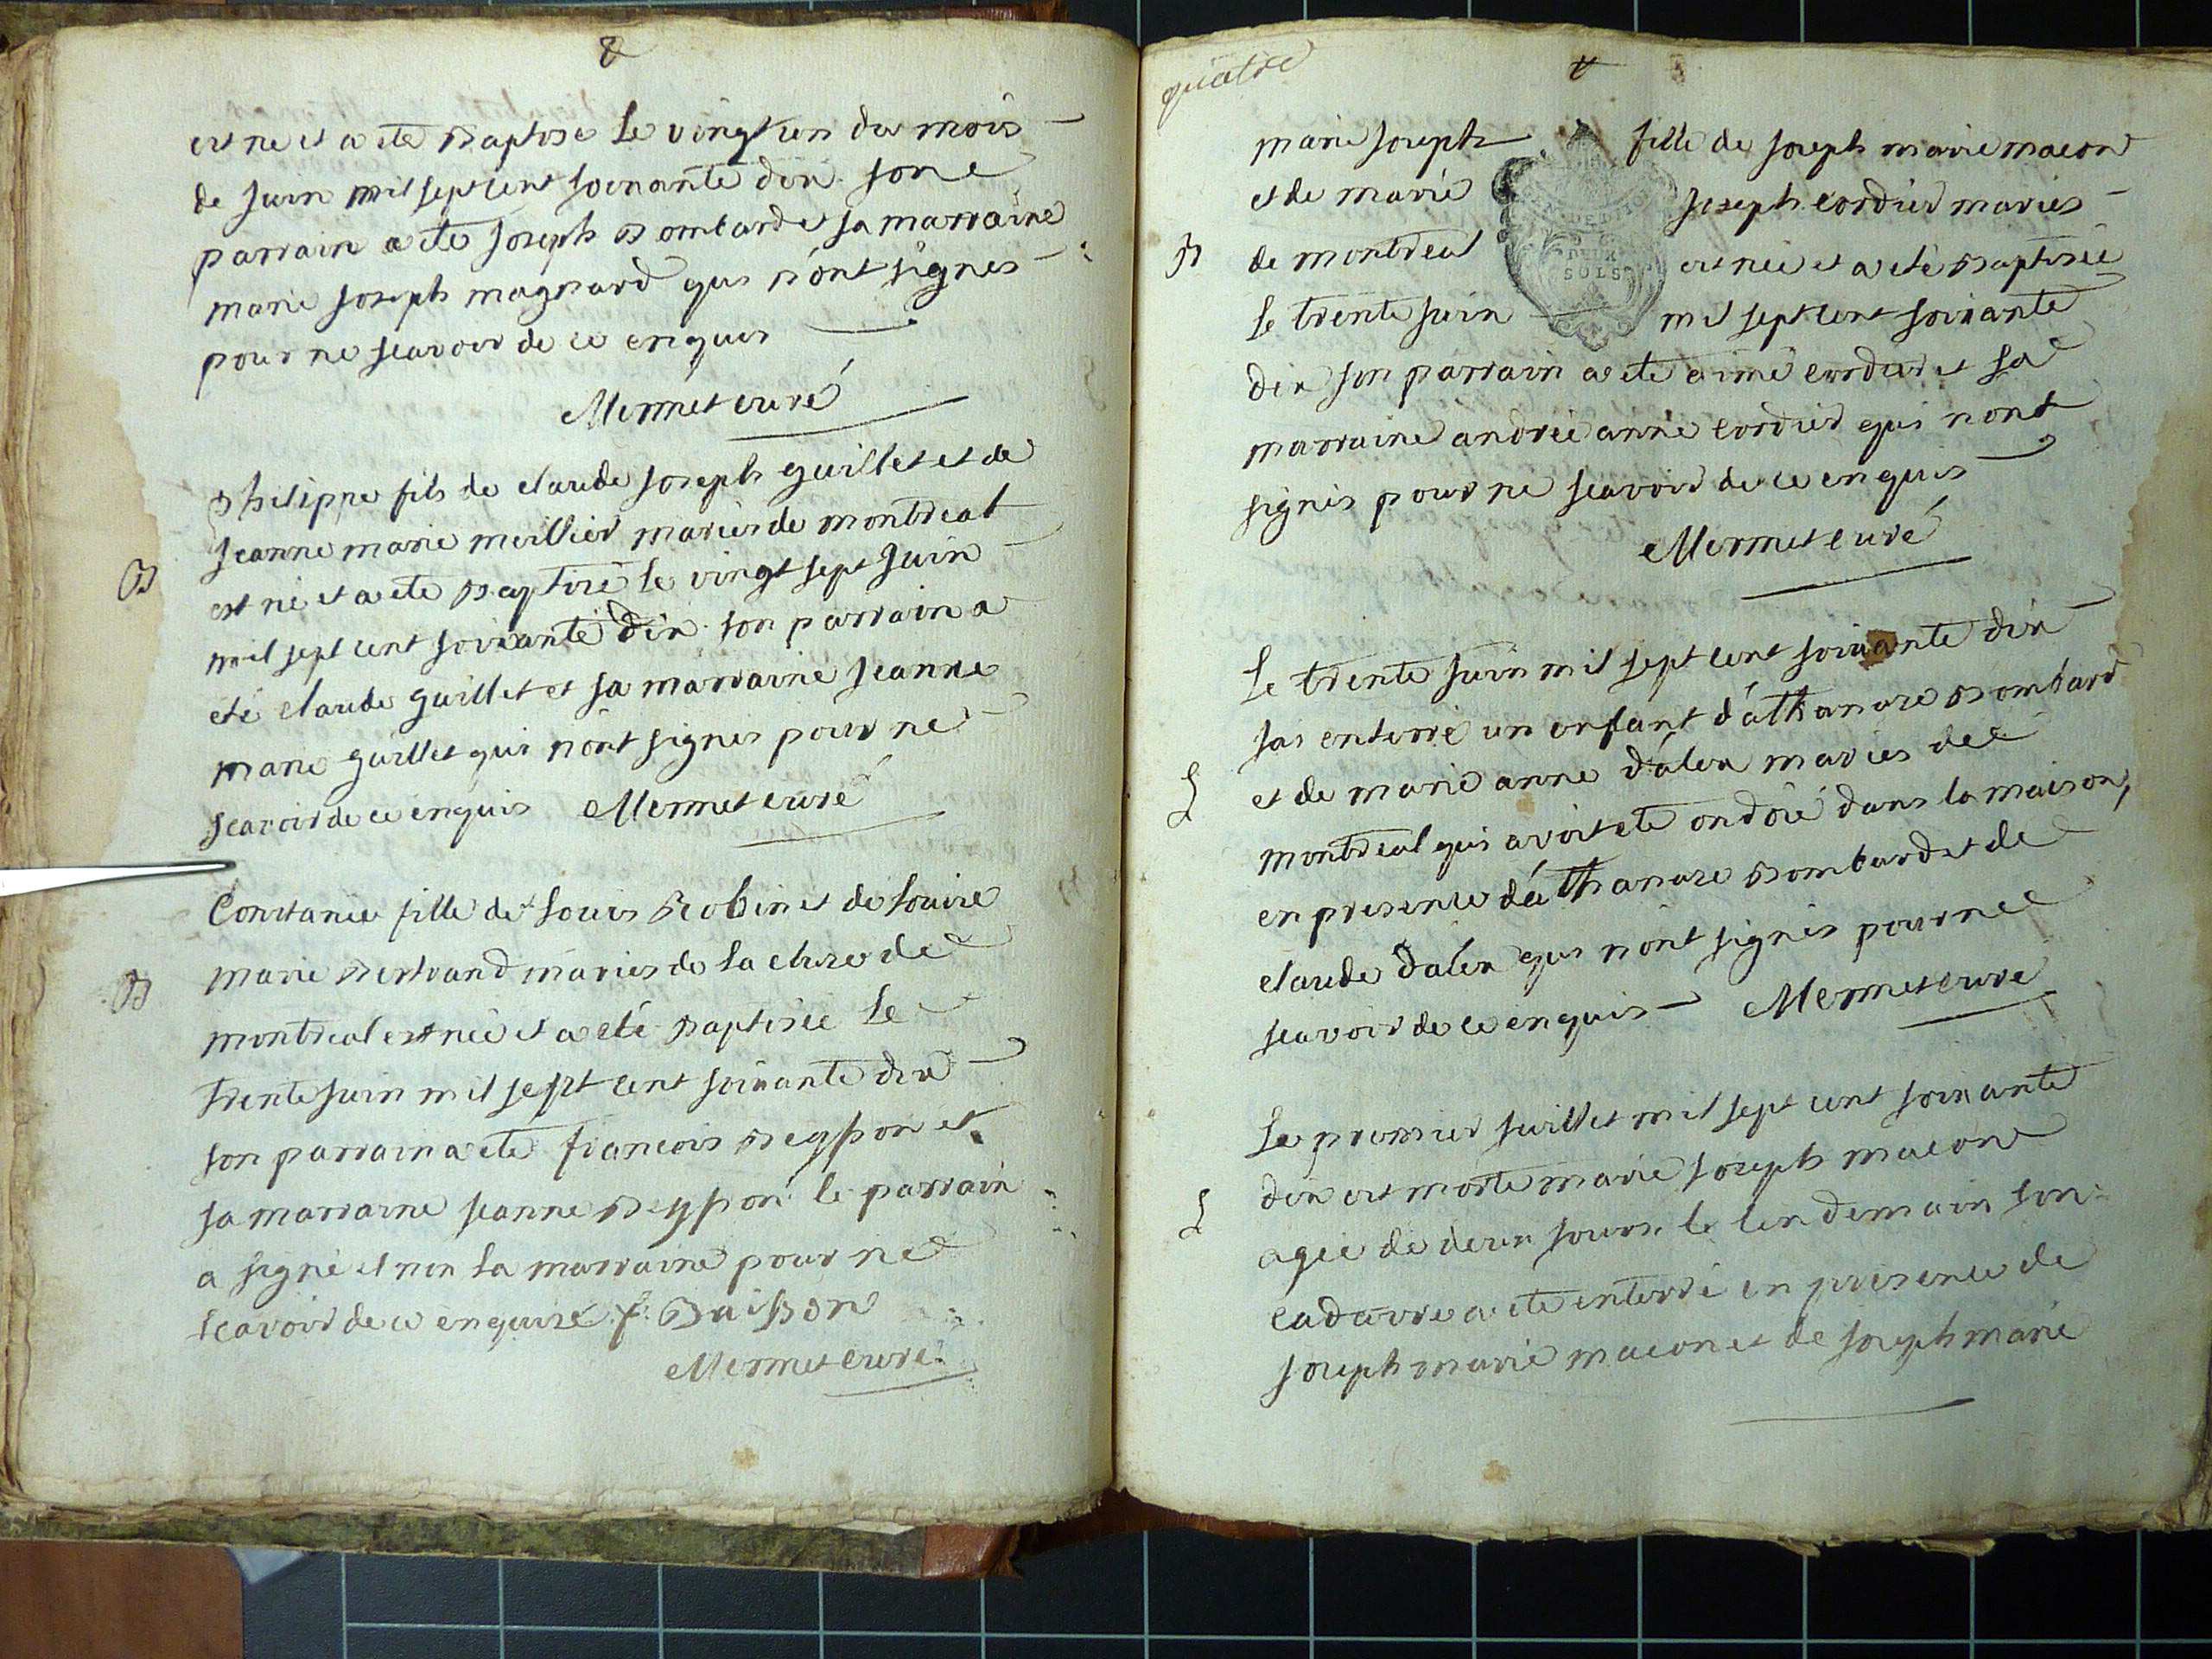 est ne et a ete Baptisé le vingt un du mois
de juin mil sept cent soixante dix son
parrain a ete joseph Bombard et sa marraine
marie joseph magnard qui n'ont signes
pour ne scavoir de ce enquis
Mermet curé
philippe fils de claude joseph guillet et de
jeanne marie meillier maries de montreal
B
est né et a ete Baptisé le vingt sept juin
mil sept cent soixante dix son parrain a
eté claude guillet et sa marraine jeanne
marie guillet qui n'ont signes pour ne
scavoir de ce enquis Mermet curé
Constance fille de louis Robin et de louise
marie Bertrand maries de la cluse de
B
montreal est née et a eté Baptisée le
trente juin mil sept cent soixante dix
son parrain a ete francois et
sa marraine jeanne le parrain
a signé et non la marraine pour ne
scavoir de ce enquise f. Buisson
Mermet curé
quatre
marie joseph fille de joseph marie macon
et de marie joseph cordier maries
B
de montreal est née et a eté Baptisée
DEUX
SOLS
le trente juin mil sept cent soixante
dix son parrain a ete aimé cordier et sa
marraine andrée anne cordier qui nont
signés pour ne scavoir de ce enquis
Mermet curé
le trente juin mil sept cent soixante dix
jai enterré un enfant d'athanase Bombard
S
et de marie anne d'alex maries de
montreal qui avoit ete ondoié dans la maison,
en presence d'athanase Bombard et de
claude dalex qui n'ont signés pour ne
scavoir de ce enquis Mermet curé
Le premier juillet mil sept cent soixante
S
dix est morte marie joseph macon
agée de deux jours. le lendemain son
cadavre a ete enterré en presence de
joseph marie macon et de joseph marie